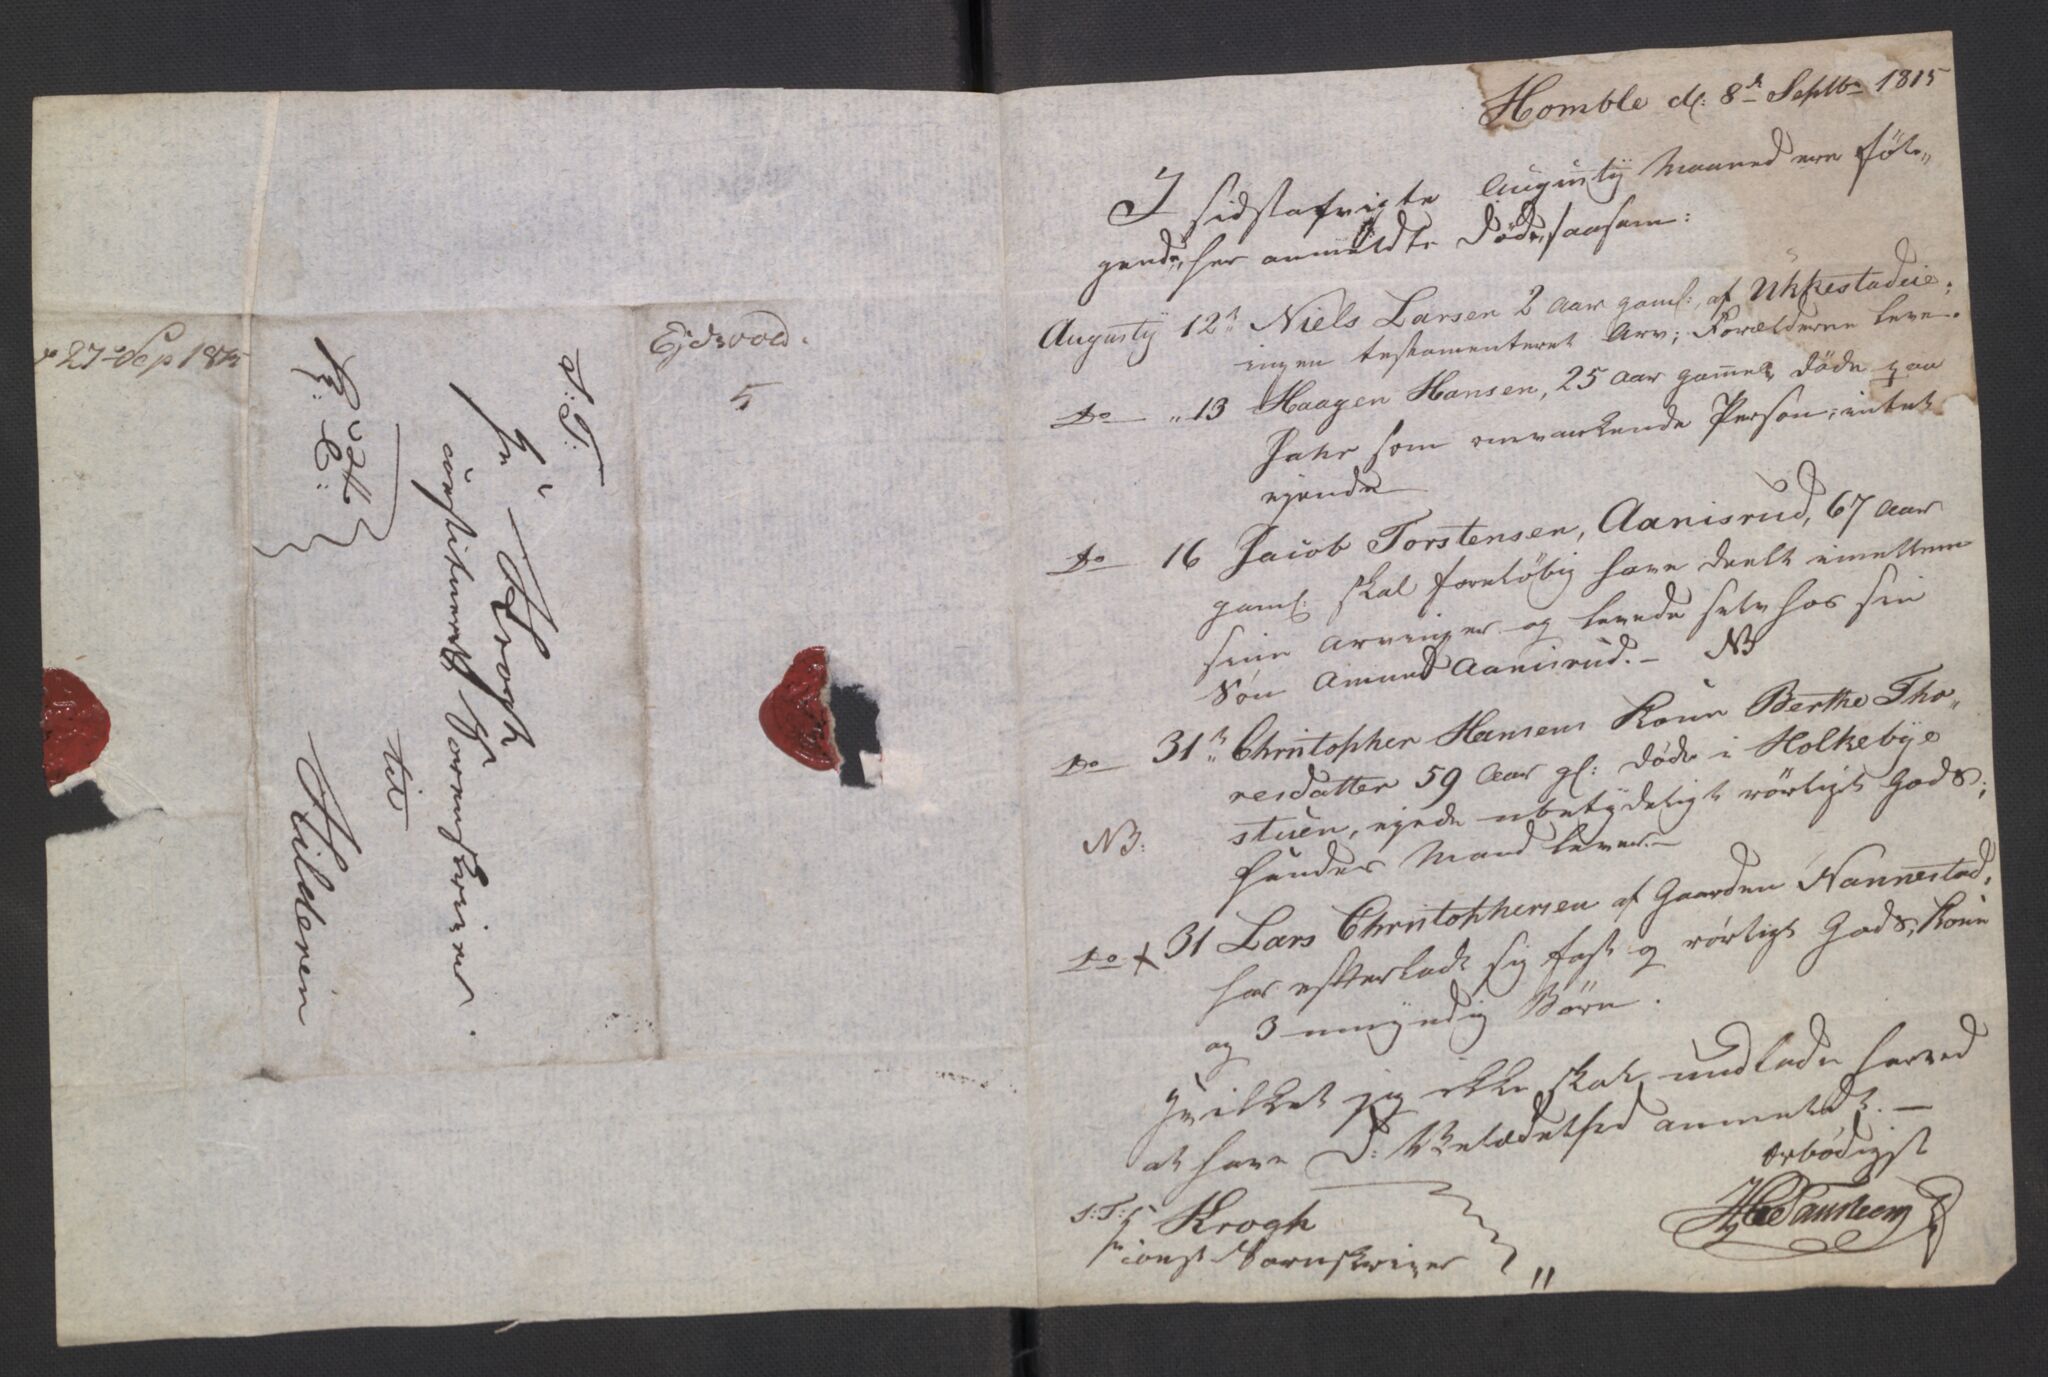 Homble d: 8de Septbr 1815
I sidstafvigte Augusty Maaned ere føl„
gende, her anmeldte Døde, saasom:
Augusty 12te Niels Larsen 2 aar gaml:, af Ukkestadeie;
ingen testamenteret Arv; Forælderne leve.
Do „13 Haagen Hansen, 25 aar gammel, døde paa
som omvankende Person; intet
ejende
Do 16 Jacob Torstensen, Aanisrud, 67 aar
gaml: skal foreløbig have deelt imellem
sine Arvinger og levede selv hos sin
Søn Amund Aanisrud. — NB
Do 31te Christopher Hansens Kone Berthe Tho„
resdatter 59 Aar gl: døde i Holkebye
NB: stuen, ejede ubetydeligt rørligt Gods;
hendes Mand lever. —
Do + 31 Lars Christophersen af Gaarden Nannestad,
har efterladt sig fast og rørligt Gods, Kone
og 3 umyndig Børn.
Hvilket jeg ikke skal undlade herved
at have D: Velædelhed anmeldt. —
Ærbødigst
S: T: Hr Krogh
const Sorenskriver
Ejdsvold.
5
S: T:
Hr Krogh
constitueret Sorenskriver
til
Kilderen
27 Sep 1815